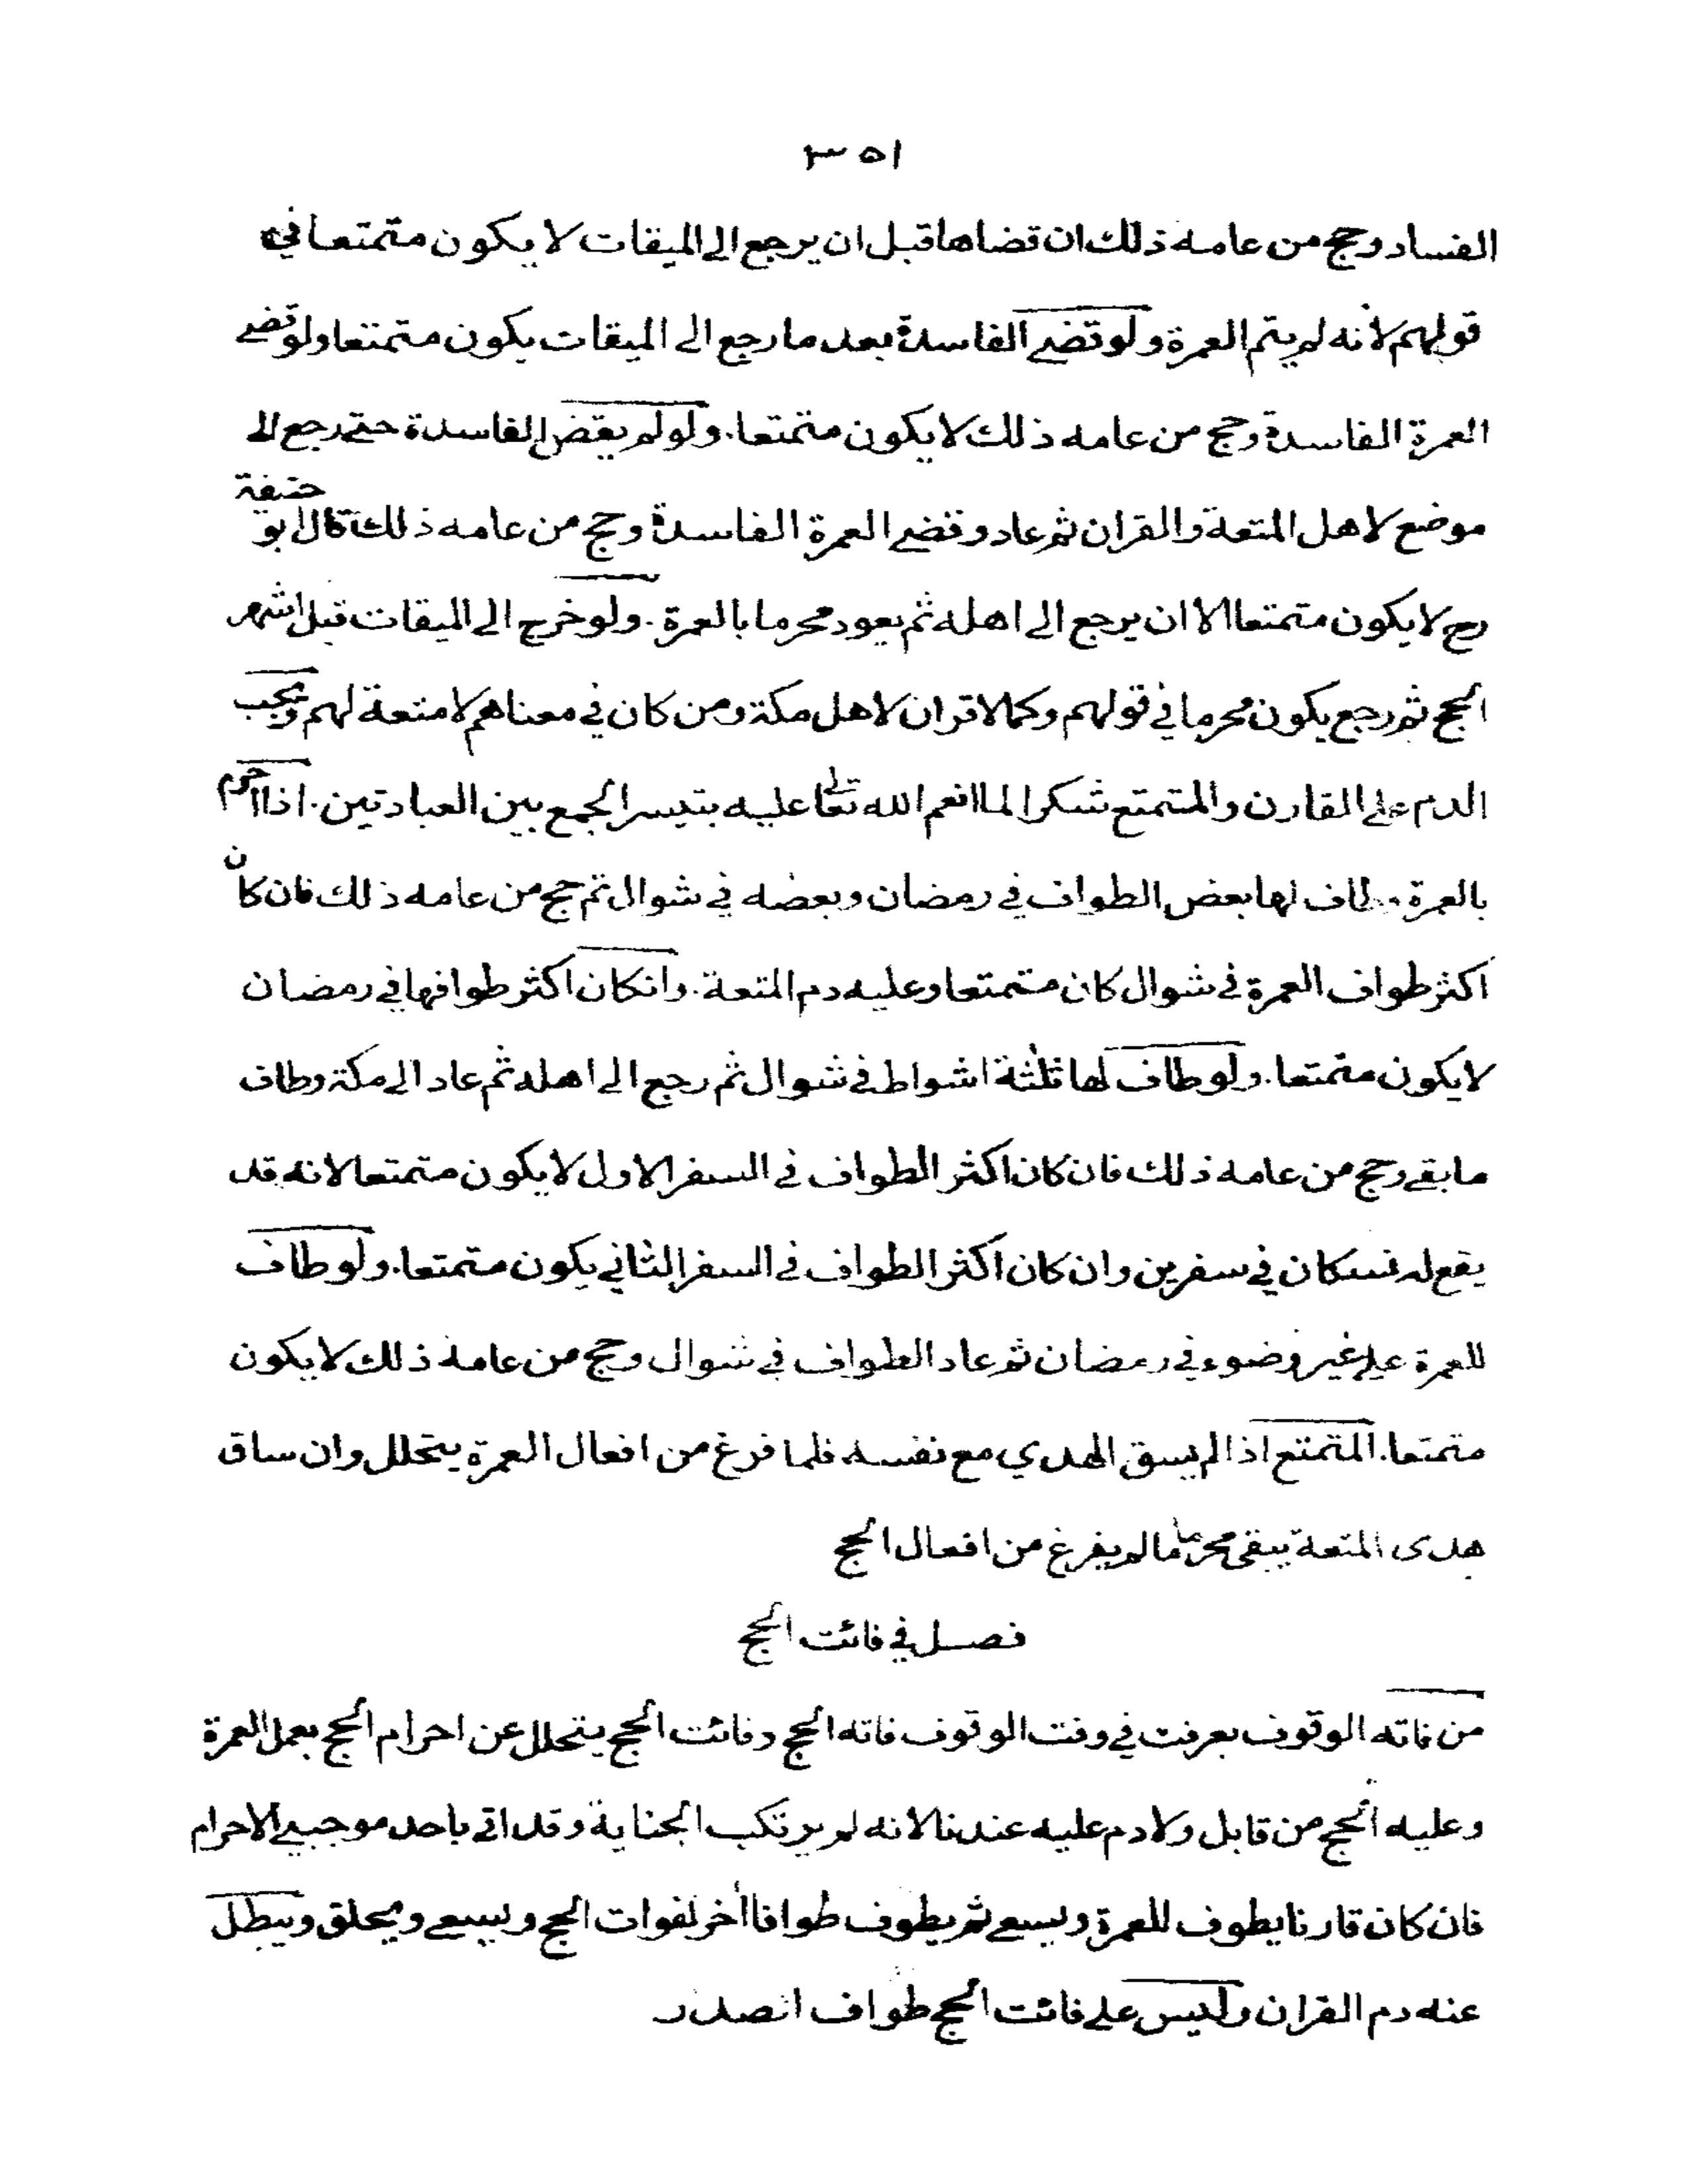 ٣٥١
الفساد وحج من عامه ذلك ان قضاها قبل ان يرجع الى الميقات لا يكون متمتعا في
قولهم لانه لم يتم العمرة ولو قضى الفاسدة بعد ما رجع الى الميقات يكون متمتعا ولو قضى
العمرة الفاسدة وحج من عامه ذلك لا يكون متمتعا. ولو لم يقض الفاسدة حتى رجع الى
موضع لاهل المتعة والقران ثم عاد وقضى العمرة الفاسدة وحج من عامه ذلك قال ابو حنيفة
رح لا يكون متمتعا الا ان يرجع الى اهله ثم يعود محرما بالعمرة. ولو خرج الى الميقات قبل اشهر
الحج ثم رجع يكون محرما في قولهم وكما لا قران لاهل مكة ومن كان في معناهم لا متعة لهم ويجب
الدم على القارن والمتمتع شكرا لما انعم الله تعالى عليه بتيسر الجمع بين العبادتين. اذا احرم
بالعمرة وطاف لها بعض الطواف في رمضان وبعضه في شوال ثم حج من عامه ذلك فان كان
اكثر طواف العمرة في شوال كان متمتعا وعليه دم المتعة. وان كان اكثر طوافها في رمضان
لا يكون متمتعا. ولو طاف لها ثلثة اشواط في شوال ثم رجع الى اهله ثم عاد الى مكة وطاف
ما بقى وحج من عامه ذلك فان كان اكثر الطواف في السفر الاول لا يكون متمتعا لانه قد
يقع له نسكان في سفرين وان كان اكثر الطواف في السفر الثاني يكون متمتعا. ولو طاف
للعمرة على غير وضوء في رمضان ثم عاد الطواف في شوال وحج من عامه ذلك لا يكون
متمتعا. المتمتع اذا لم يسق الهدي مع نفسه فلما فرغ من افعال العمرة يتحلل وان ساق
هدى المتعة يبقى محرما ما لم يفرغ من افعال الحج
فصل في فائت الحج
من فاته الوقوف بعرفت في وقت الوقوف فاته الحج وفائت الحج يتحلل عن احرام الحج بعمل العمرة
وعليه الحج من قابل ولا دم عليه عندنا لانه لم يرتكب الجناية وقد اتى باحد موجبي الاحرام
فان كان قارنا يطوف للعمرة ويسعى ثم يطوف طوافا اخر لفوات الحج ويسعى ويحلق ويبطل
عنه دم القران وليس على فائت الحج طواف الصدر